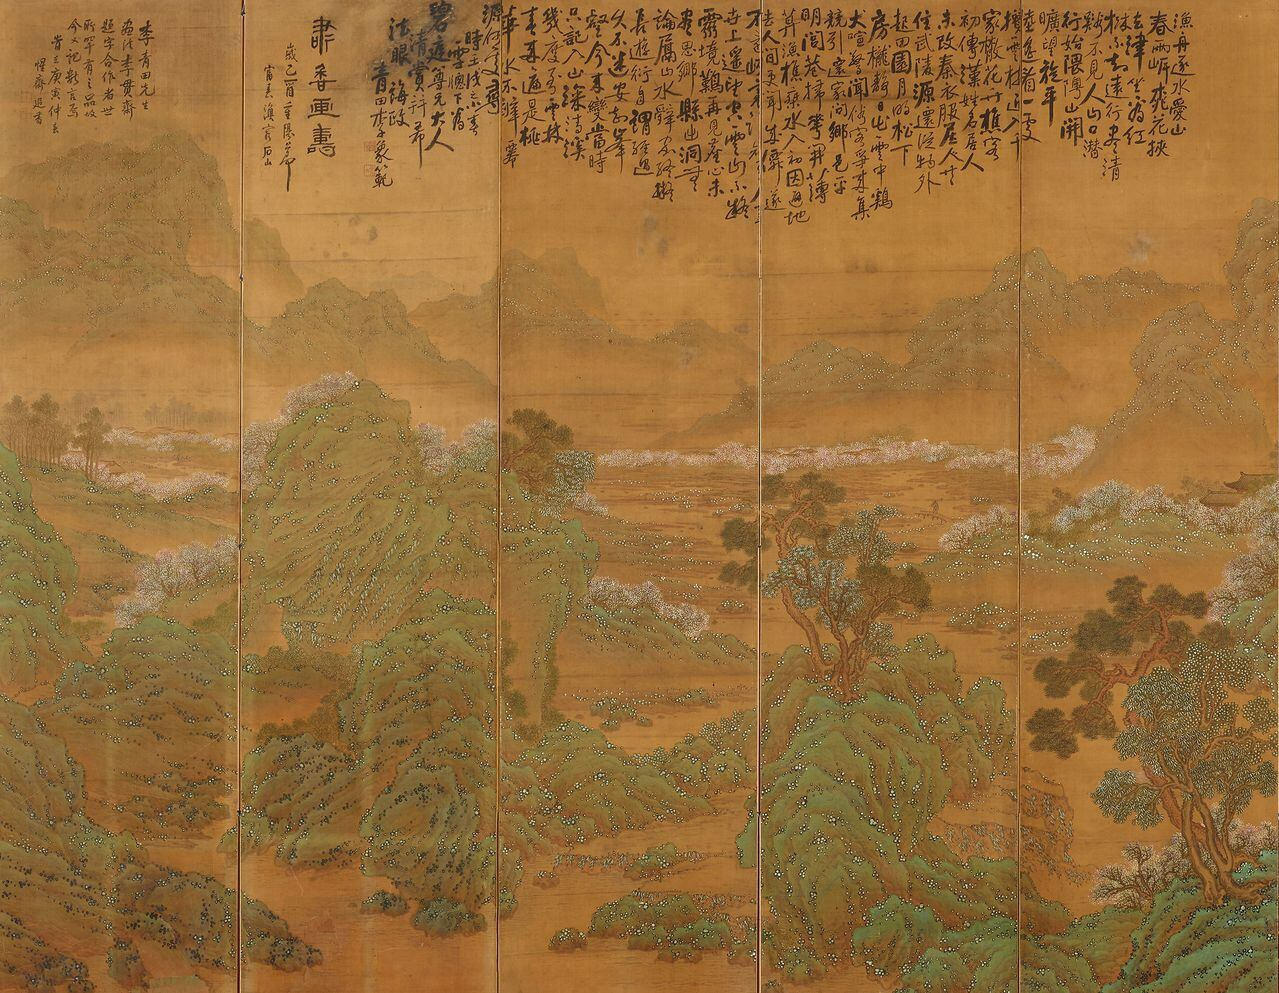 漁舟逐水愛山
春兩岸桃花挾
去津坐看紅
樹不知遠行盡清
谿不見人山口潛
行始隈隩山開
曠望旋平
陸遙看一處
攢雲樹近入千
家散花竹樵客
初傳漢姓名居人
未改秦衣服居人共
住武陵源還從物外
起田園月明松下
房櫳靜日出雲中鷄
犬喧驚聞俗客爭來集
競引還家問鄉邑平
明閭巷掃花開薄
漁樵乘水入初因避地
去人間更聞成仙遂
不
世上遙望空雲山不疑
靈境難再見塵心未
盡思鄉縣出洞無
論隔山水辭家終擬
長遊衍自謂經過
久不迷安知峯
壑今來變當時
只記入山深清溪
幾度到雲林
春來遍是桃
華水不辨
源何處尋
時壬戌小春
雪窗下為
碧庭尊兄大人
清賞並希
法眼海政
青田李象範
書香畫壽
歲乙酉
李青田先生
畫法李貫齋
題字合作者世
所罕有之品故
今又記數言焉
惺齋題書